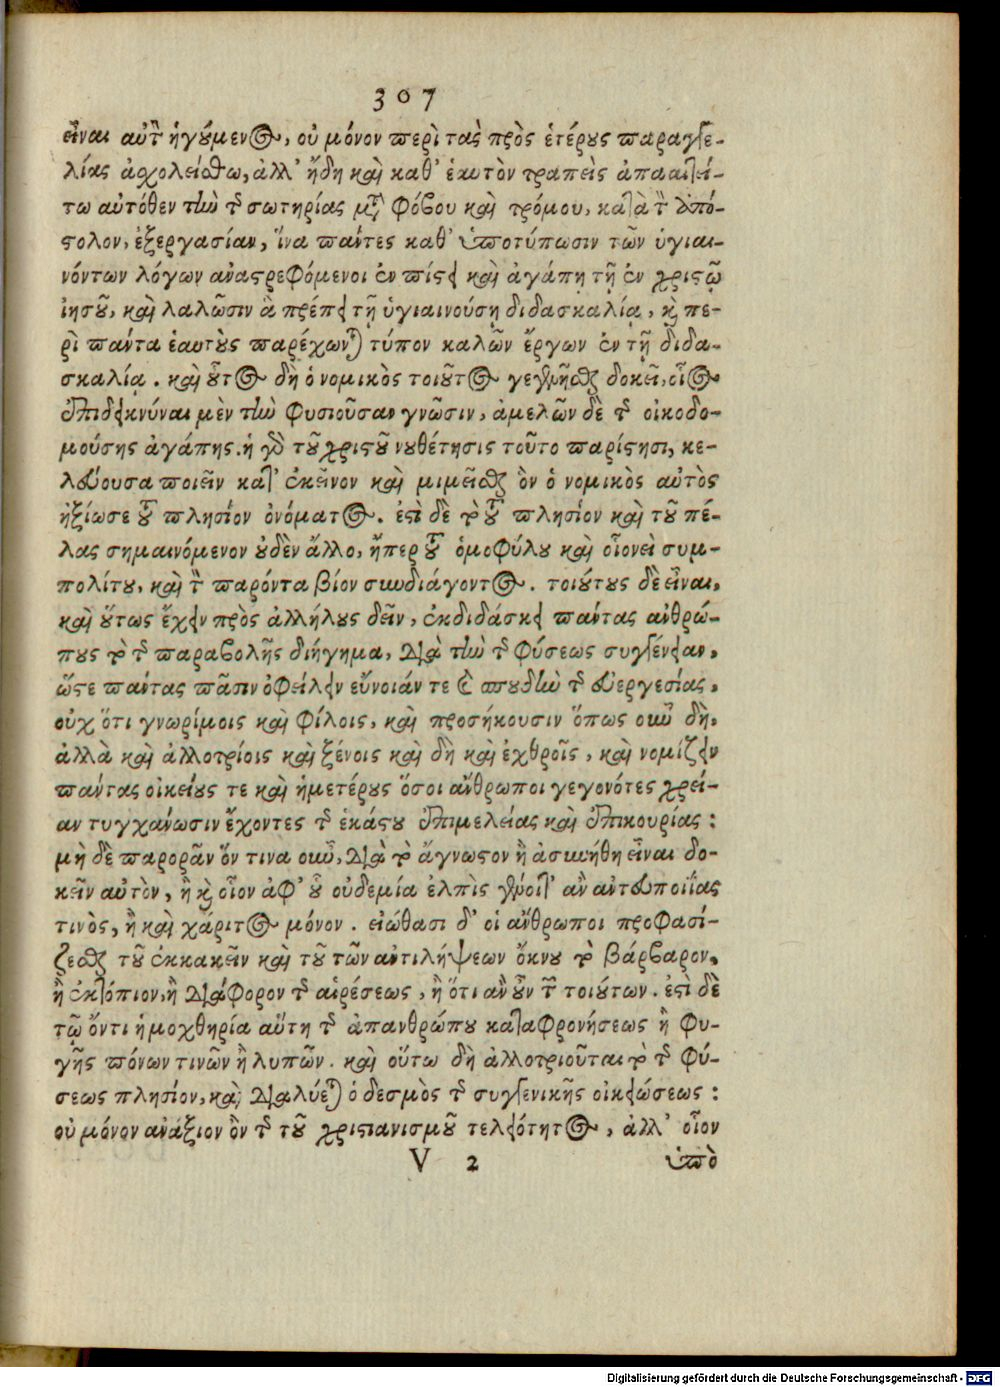 307
εἶναι αὐτὸν ἡγούμενος, οὐ μόνον περὶ τὰς πρὸς ἑτέρους παραγγε-
λίας ἀσχολείσθω, ἀλλ' ἤδη καὶ καθ' ἑαυτὸν τραπεὶς ἀπαιτεί-
τω αὐτόθεν τὴν τῆς σωτηρίας μετὰ φόβου καὶ τρόμου, κατὰ τὸν ἀπό-
στολον, ἐξεργασίαν, ἵνα πάντες καθ' ὑποτύπωσιν τῶν ὑγιαι-
νόντων λόγων ἀναστρεφόμενοι ἐν πίστει καὶ ἀγάπῃ τῇ ἐν χριστῷ
ἰησοῦ, καὶ λαλῶσιν ἃ πρέπει τῇ ὑγιαινούσῃ διδασκαλίᾳ, καὶ πε-
ρὶ πάντα ἑαυτοὺς παρέχωνται τύπον καλῶν ἔργων ἐν τῇ διδα-
σκαλίᾳ. καὶ οὗτος δὴ ὁ νομικὸς τοιοῦτος γεγενῆσθαι δοκεῖ, οἷος
ἐπιδεικνύναι μὲν τὴν φυσιοῦσαν γνῶσιν, ἀμελῶν δὲ τῆς οἰκοδο-
μούσης ἀγάπης. ἡ γὰρ τοῦ χριστοῦ νουθέτησις τοῦτο παρίστησι, κε-
λεύουσα ποιεῖν κατ' ἐκεῖνον καὶ μιμεῖσθαι ὃν ὁ νομικὸς αὐτὸς
ἠξίωσε τοῦ πλησίον ὀνόματος. ἐστὶ δὲ τὸ τοῦ πλησίον καὶ τοῦ πέ-
λας σημαινόμενον οὐδὲν ἄλλο, ἤπερ τοῦ ὁμοφύλου καὶ οἱονεὶ συμ-
πολίτου, καὶ τὸν παρόντα βίον συνδιάγοντος. τοιούτους δὲ εἶναι,
καὶ οὕτως ἔχειν πρὸς ἀλλήλους δεῖν, ἐκδιδάσκει πάντας ἀνθρώ-
πους τὸ τῆς παραβολῆς διήγημα, διὰ τὴν τῆς φύσεως συγγένειαν,
ὥστε πάντας πᾶσιν ὀφείλειν εὔνοιάν τε καὶ σπουδὴν τῆς εὐεργεσίας,
οὐχ ὅτι γνωρίμοις καὶ φίλοις, καὶ προσήκουσιν ὅπως οὖν δὴ,
ἀλλὰ καὶ ἀλλοτρίοις καὶ ξένοις καὶ δὴ καὶ ἐχθροῖς, καὶ νομίζειν
πάντας οἰκείους τε καὶ ἡμετέρους ὅσοι ἄνθρωποι γεγονότες χρεί-
αν τυγχάνωσιν ἔχοντες τῆς ἑκάστου ἐπιμελείας καὶ ἐπικουρίας:
μὴ δὲ παρορᾶν ὅν τινα οὖν, διὰ τὸ ἄγνωστον ἢ ἀσυνήθη εἶναι δο-
κεῖν αὐτὸν, ἢ καὶ οἷον ἀφ' οὗ οὐδεμία ἐλπὶς γένοιτ' ἂν ἀντευποιΐας
τινὸς, ἢ καὶ χάριτος μόνον. εἰώθασι δ' οἱ ἄνθρωποι προφασί-
ζεσθαι τοῦ ἐκκακεῖν καὶ τοῦ τῶν ἀντιλήψεων ὄκνου τὸ βάρβαρον,
ἢ ἐκτόπιον, ἢ διάφορον τῆς αἱρέσεως, ἢ ὅτι ἂν οὖν τῶν τοιούτων. ἐστὶ δὲ
τῷ ὄντι ἡ μοχθηρία αὕτη τῆς ἀπανθρώπου καταφρονήσεως ἢ φυ-
γῆς πόνων τινῶν ἢ λυπῶν. καὶ οὕτω δὴ ἀλλοτριοῦται τὸ τῆς φύ-
σεως πλησίον, καὶ διαλύεται ὁ δεσμὸς τῆς συγγενικῆς οἰκειώσεως:
οὐ μόνον ἀνάξιον ὂν τῆς τοῦ χριστιανισμοῦ τελειότητος, ἀλλ' οἷον
V 2 ὑπὸ
Digitalisierung gefördert durch die Deutsche Forschungsgemeinschaft - DFG